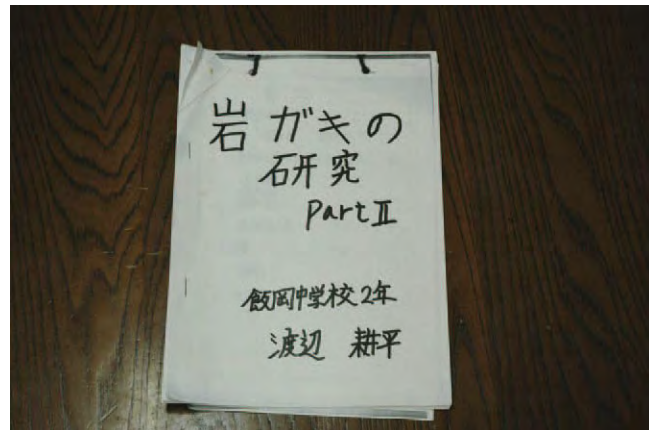 岩ガキの
研究
PartⅡ
飯岡中学校2年
渡辺 耕平